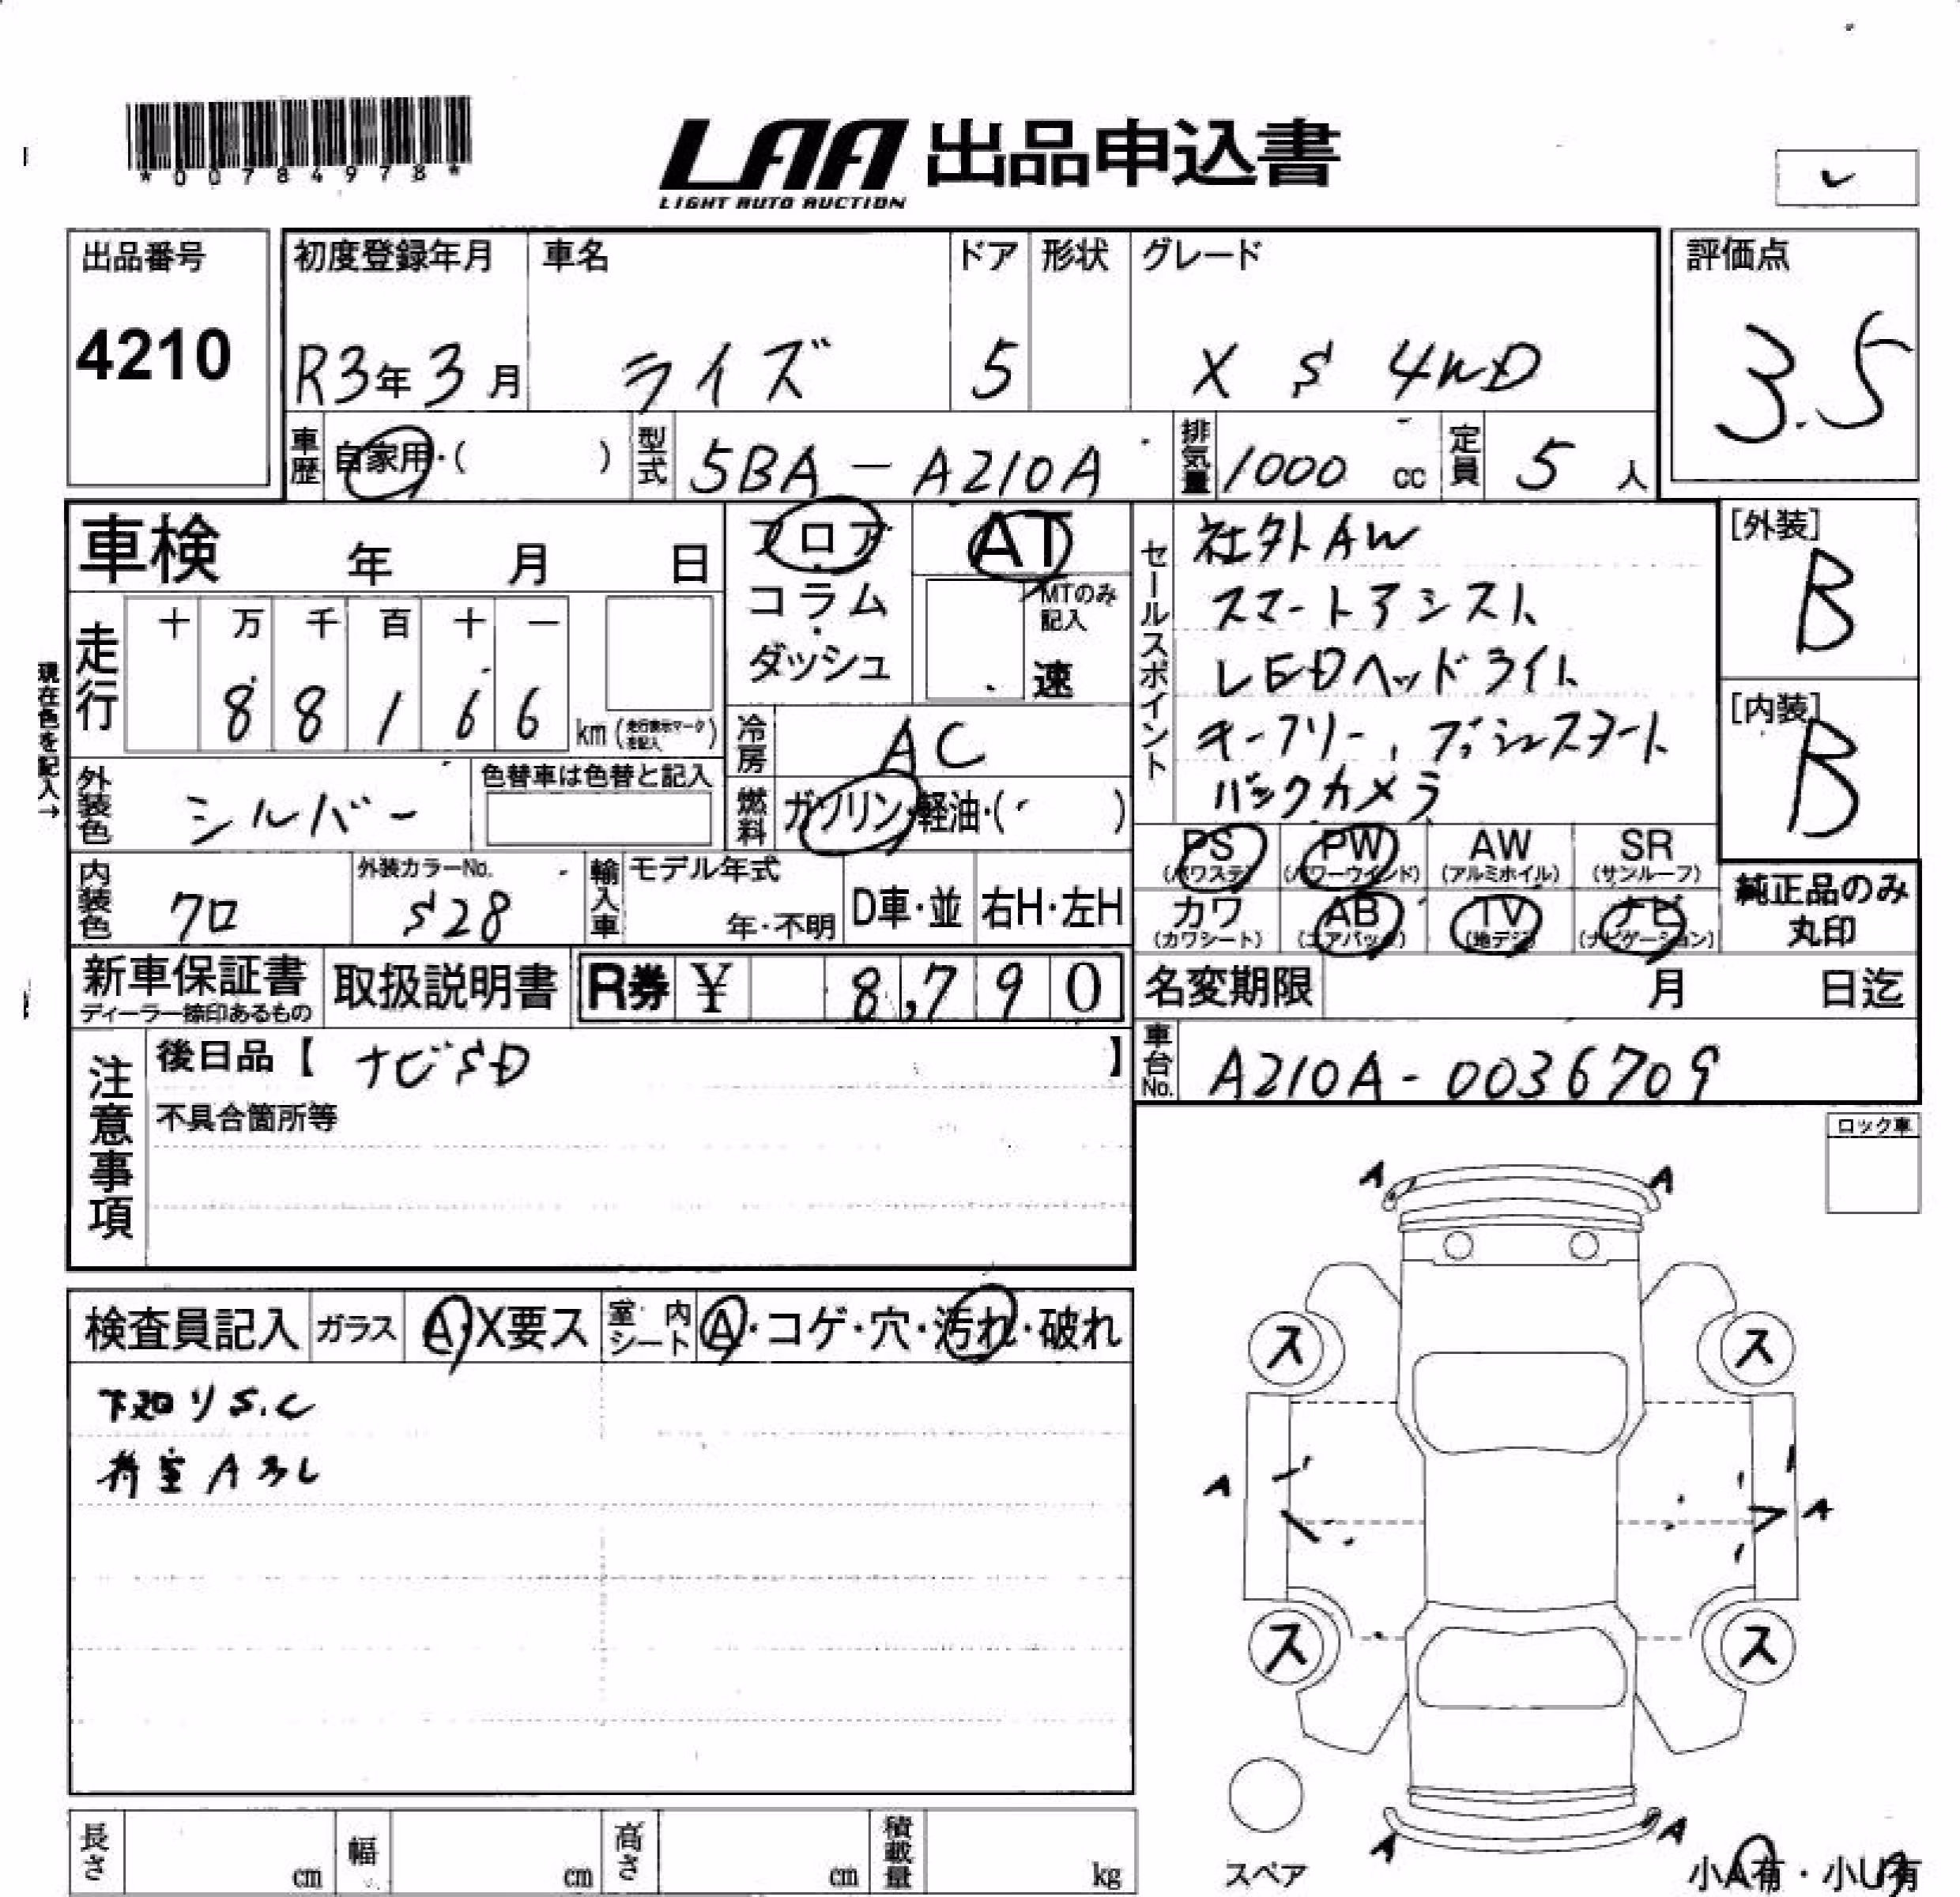 *00784978*
LAA 出品申込書
LIGHT AUTO AUCTION
出品番号
4210
初度登録年月
R3年3月
車名
ライズ
ドア
5
形状
グレード
X S 4WD
評価点
3.5
車歴
自家用・( )
型式
5BA-A210A
排気量
1000 cc
定員
5 人
車検 年 月 日
フロア
コラム
ダッシュ
AT
MTのみ記入
速
セールスポイント
社外AW
スマートアシスト
LEDヘッドライト
キーフリー、プッシュスタート
バックカメラ
[外装]
B
[内装]
B
現在色を記入→
走行
十 万 千 百 十 一
8 8 1 6 6 km(走行表示マークを記入)
冷房
AC
外装色
シルバー
色替車は色替と記入
燃料
ガソリン・軽油・( )
PS
(パワステ)
PW
(パワーウインド)
AW
(アルミホイル)
SR
(サンルーフ)
カワ
(カワシート)
AB
(エアバック)
TV
(地デジ)
ナビ
(ナビゲーション)
純正品のみ
丸印
内装色
クロ
外装カラーNo.
S28
輸入車
モデル年式
年・不明
D車・並
右H・左H
新車保証書
ディーラー捺印あるもの
取扱説明書
R券 ¥ 8,790
名変期限 月 日迄
注意事項
後日品【 ナビSD 】
不具合箇所等
車台No.
A210A-0036709
ロック車
検査員記入
ガラス
A・X要ス
室内シート
A・コゲ・穴・汚れ・破れ
下廻りS.C
荷室Aヨレ
A A
ス ス
A A
ス ス
A A
スペア
小A有・小U有
長さ cm
幅 cm
高さ cm
積載量 kg